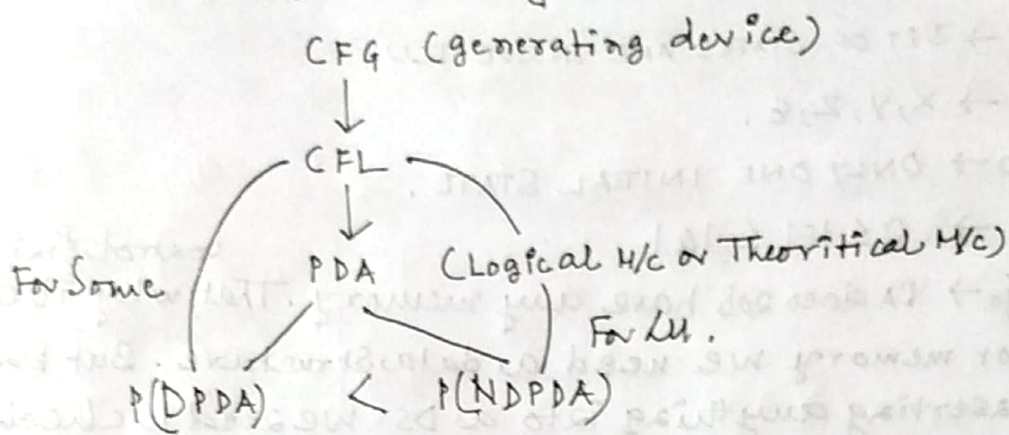 CFG (generating device)
CFL
For Some PDA (Logical M/c or Theoritical M/c)
For All.
P(DPDA) < P(NDPDA)